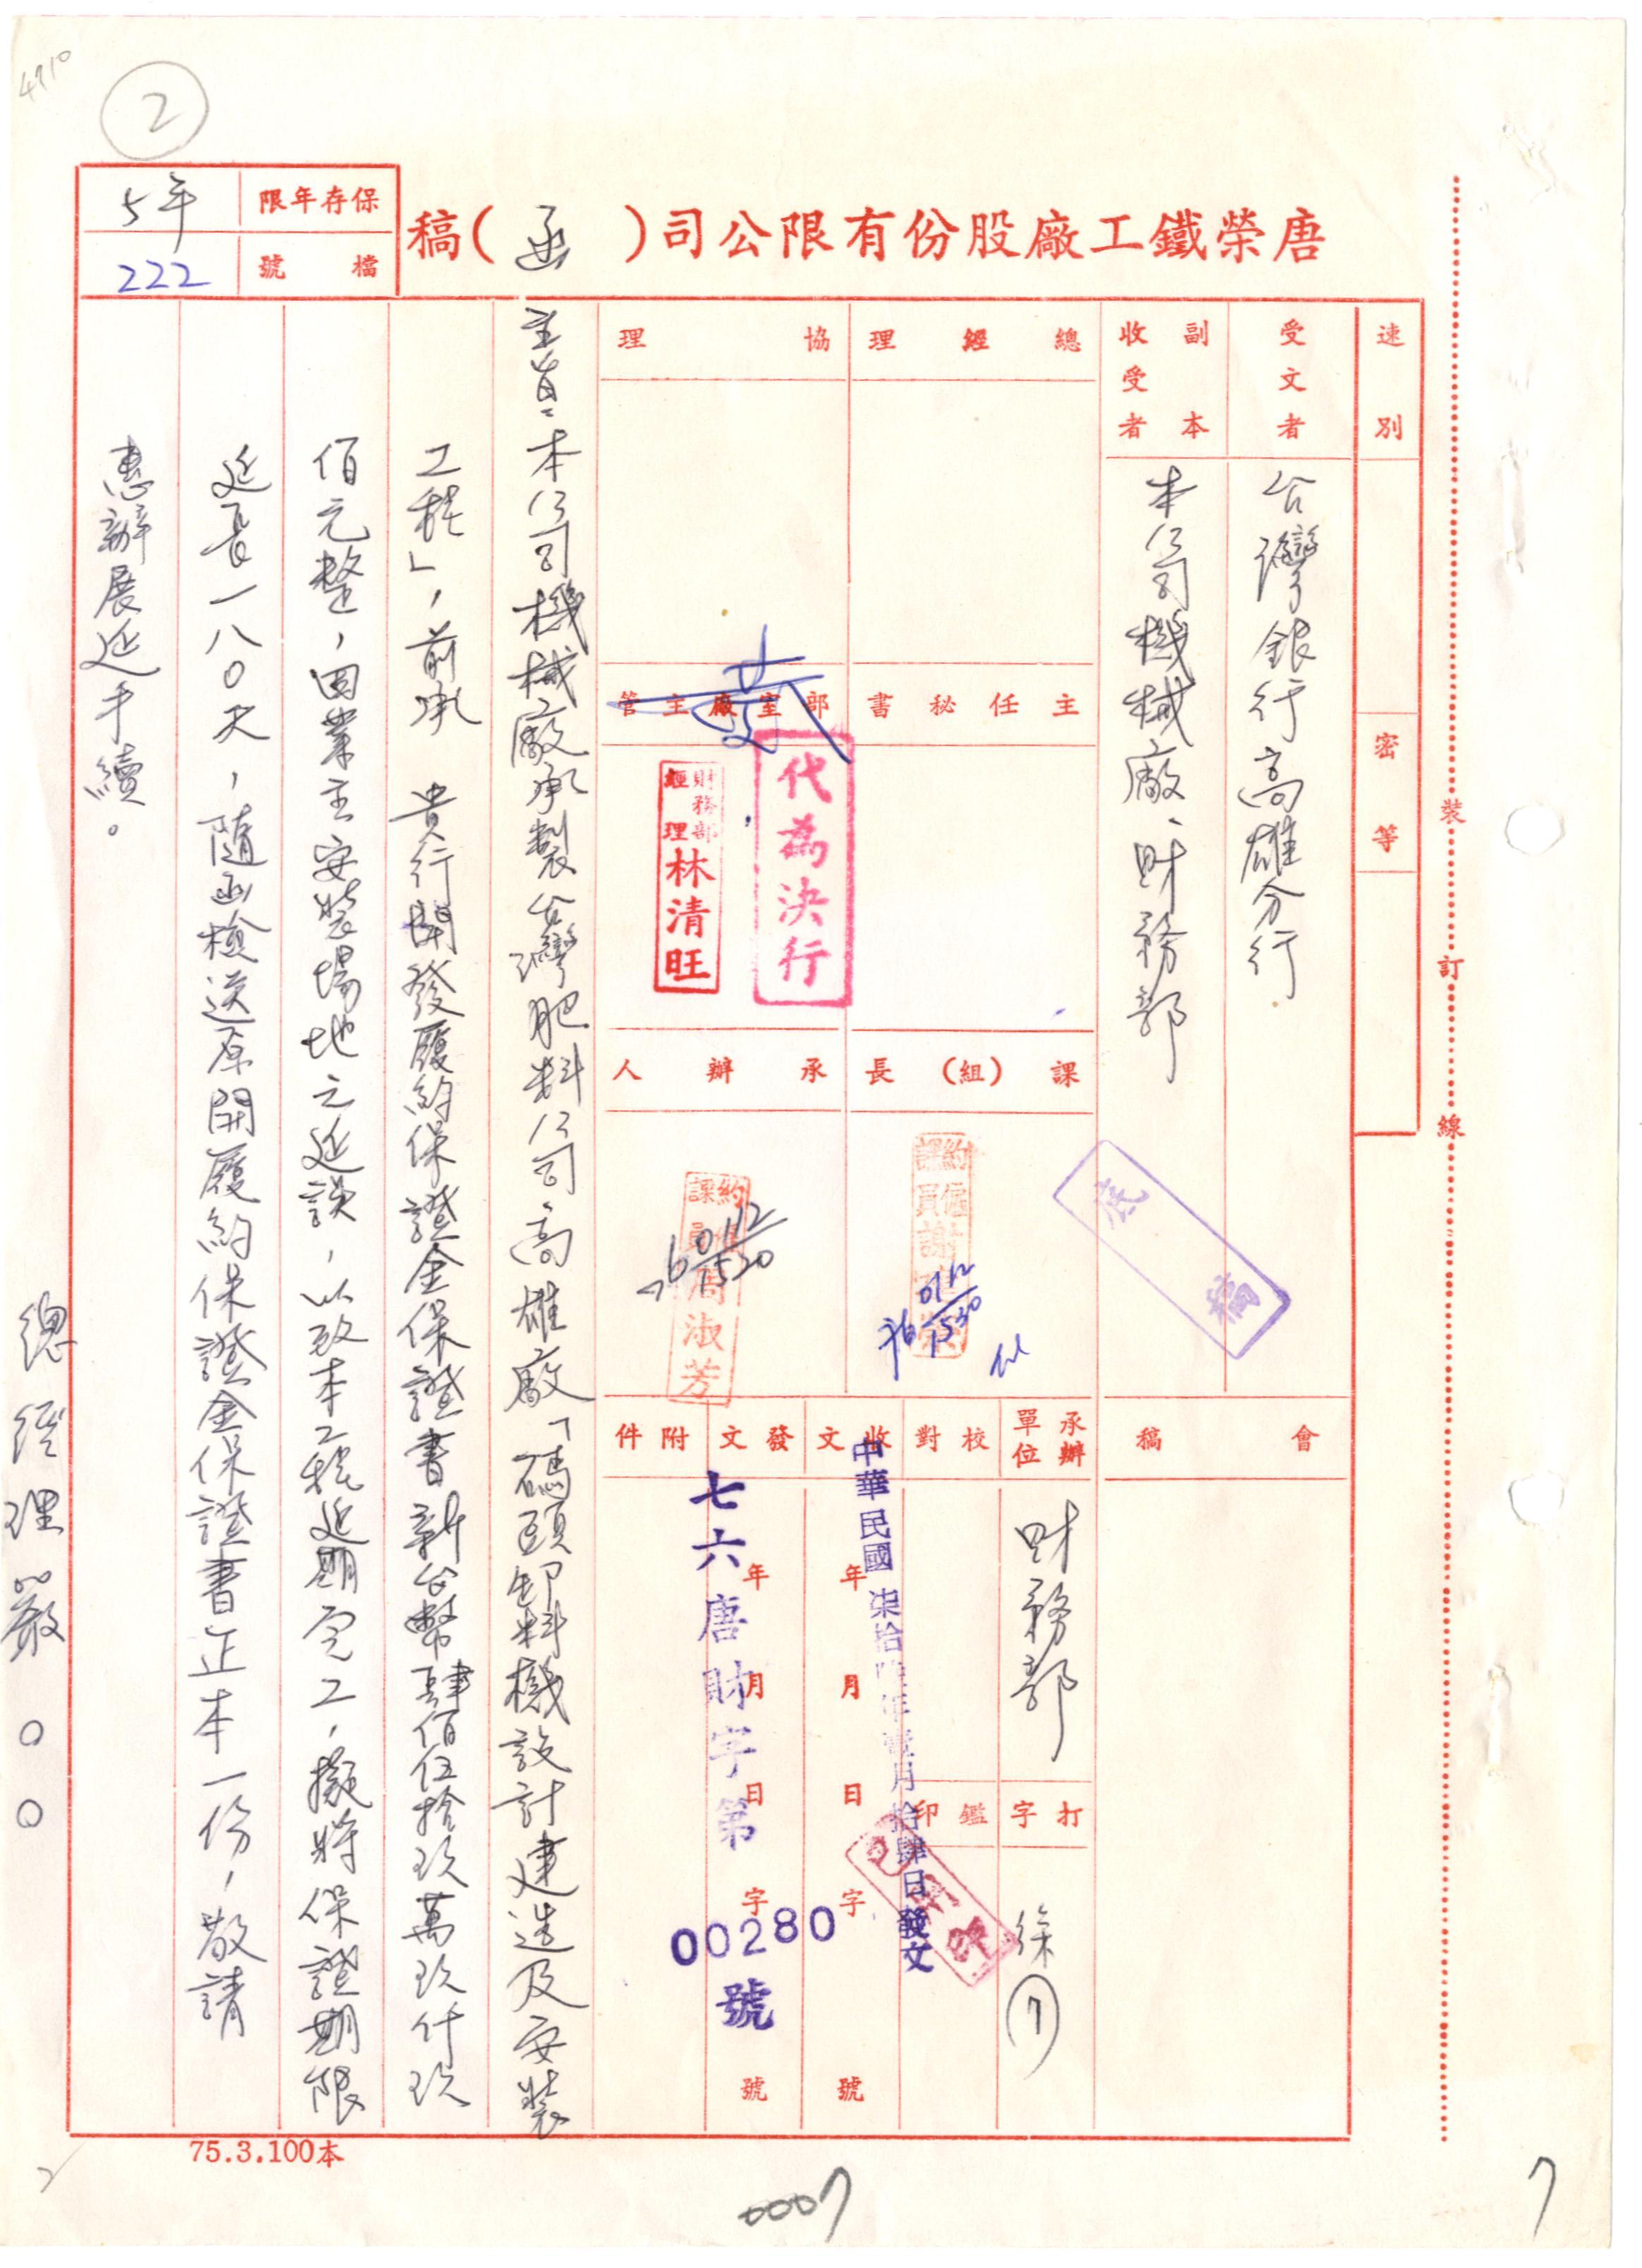 4910
②
唐榮鐵工廠股份有限公司（函）稿
保存年限
5年
檔號
222
速別
密等
受文者
台灣銀行高雄分行
副本
收受者
本公司機械廠、財務部
底稿
會稿
總經理
協理
主任秘書
部室廠主管
代為決行
財務部
經理
林清旺
課(組)長
承辦人
約僱
課員
謝
01/12
1530
約僱
課員
周淑芳
76
01/12
1520
承辦單位
財務部
校對
收文
年月日字號
中華民國柒拾陸年壹月拾肆日發文
發文
年月日字號
七六唐財字第
00280
號
附件
打字
徐
⑦
鑑印
主旨：本公司機械廠承製台灣肥料公司高雄廠「碼頭卸料機設計建造及安裝
工程」，前承　貴行開發履約保證金保證書新台幣肆佰伍拾玖萬玖仟玖
佰元整，因業主安裝場地之延誤，以致本工程延期完工，擬將保證期限
延長一八○天，隨函檢送原開履約保證金保證書正本一份，敬請
惠辦展延手續。
總經理嚴○○
裝訂線
75.3.100本
0007
7